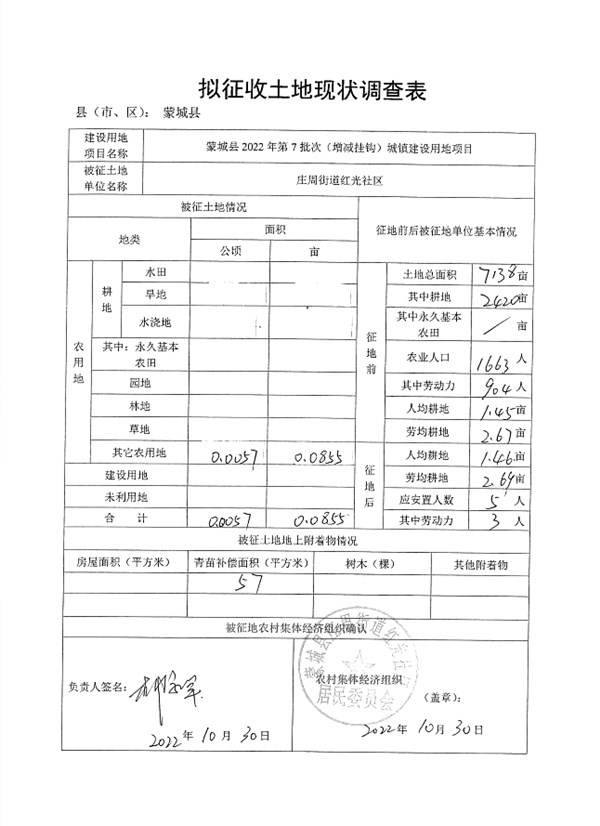 拟征收土地现状调查表
县（市、区）： 蒙城县
建设用地项目名称 蒙城县 2022 年第 7 批次（增减挂钩）城镇建设用地项目
被征土地单位名称 庄周街道红光社区
被征土地情况 征地前后被征地单位基本情况
地类 面积
公顷 亩
农用地 耕地 水田 征地前 土地总面积 7138 亩
旱地 其中耕地 2420 亩
水浇地 其中永久基本农田 / 亩
其中：永久基本农田 农业人口 1663 人
园地 其中劳动力 904 人
林地 人均耕地 1.45 亩
草地 劳均耕地 2.67 亩
其它农用地 0.0057 0.0855 征地后 人均耕地 1.46 亩
建设用地 劳均耕地 2.69 亩
未利用地 应安置人数 5 人
合 计 0.0057 0.0855 其中劳动力 3 人
被征土地地上附着物情况
房屋面积（平方米） 青苗补偿面积（平方米） 树木（棵） 其他附着物
57
被征地农村集体经济组织确认
蒙城县庄周街道红光社区
居民委员会
负责人签名： 农村集体经济组织
（盖章）：
2022 年 10 月 30 日 2022 年 10 月 30 日